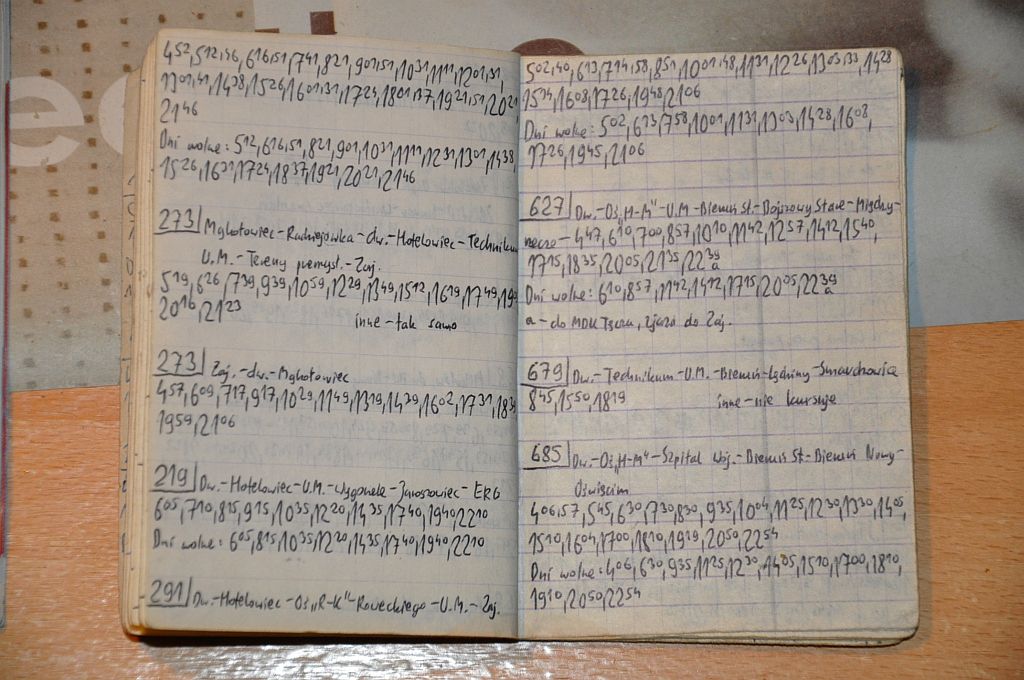 4⁵²,5¹²,⁴⁶,6¹⁶,⁵¹,7⁴¹,8²¹,9⁰¹,⁵¹,10³¹,11¹¹,12⁰¹,³¹,
13⁰¹,⁴¹,14³⁸,15²⁶,16⁰¹,³¹,17²⁴,18⁰¹,³⁷,19²¹,⁵¹,20²¹,
21⁴⁶
Dni wolne: 5¹²,6¹⁶,⁵¹,8²¹,9⁰¹,10³¹,11¹¹,12³¹,13⁰¹,14³⁸,
15²⁶,16³¹,17²⁴,18³⁷,19²¹,20²¹,21⁴⁶
273 Mąkołowiec-Radziejówka-dw.-Hotelowiec-Technikum
U.M.-Tereny przemysł.-Zaj.
5¹⁹,6²⁶,7³⁹,9³⁹,10⁵⁹,12²⁹,13⁴⁹,15¹²,16¹⁹,17⁴⁹,19
20¹⁶,21²³ inne-tak samo
273 Zaj.-dw.-Mąkołowiec
4⁵⁷,6⁰⁹,7¹⁷,9¹⁷,10²⁹,11⁴⁹,13¹⁹,14³⁹,16⁰²,17³¹,18³⁹
19⁵⁹,21⁰⁶
219 Dw.-Hotelowiec-U.M.-Wygorzele-Jaroszowiec-ERG
6⁰⁵,7¹⁰,8¹⁵,9¹⁵,10³⁵,12²⁰,14³⁵,17⁴⁰,19⁴⁰,22¹⁰
Dni wolne: 6⁰⁵,8¹⁵,10³⁵,12²⁰,14³⁵,17⁴⁰,19⁴⁰,22¹⁰
291 Dw.-Hotelowiec-Oś„R-K"-Roweckiego-U.M.-Zaj.
5⁰²,⁴⁰,6¹³,7¹⁴,⁵⁸,8⁵¹,10⁰¹,⁴⁸,11³¹,12²⁶,13⁰³,³³,14²⁸
15³⁴,16⁰⁸,17²⁶,19⁴⁸,21⁰⁶
Dni wolne: 5⁰²,6¹³,7⁵⁸,10⁰¹,11³¹,13⁰³,14²⁸,16⁰⁸,
17²⁶,19⁴⁵,21⁰⁶
627 Dw.-Oś„H-M"-U.M-Bieruń St.-Bojszowy Stare-Między-
rzecze-4⁴⁷,6¹⁰,7⁰⁰,8⁵⁷,10¹⁰,11⁴²,12⁵⁷,14¹²,15⁴⁰,
17¹⁵,18³⁵,20⁰⁵,21³⁵,22³⁹a
Dni wolne: 6¹⁰,8⁵⁷,11⁴²,14¹²,17¹⁵,20⁰⁵,22³⁹a
a-do MDK Tęcza, zjazd do Zaj.
679 Dw.-Technikum-U.M.-Bieruń-Lędziny-Smardzowice
8⁴⁵,15⁵⁰,18¹⁹ inne-nie kursuje
685 Dw.-Oś„H-M"-Szpital Woj.-Bieruń St-Bieruń Nowy-
Oświęcim
4⁰⁶,⁵⁷,5⁴⁵,6³⁰,7³⁰,8³⁰,9³⁵,10⁰⁴,11²⁵,12³⁰,13³⁰,14⁰⁵,
15¹⁰,16⁰⁴,17⁰⁰,18¹⁰,19¹⁹,20⁵⁰,22⁵⁴
Dni wolne: 4⁰⁶,6³⁰,9³⁵,11²⁵,12³⁰,14⁰⁵,15¹⁰,17⁰⁰,18¹⁰,
19¹⁰,20⁵⁰,22⁵⁴